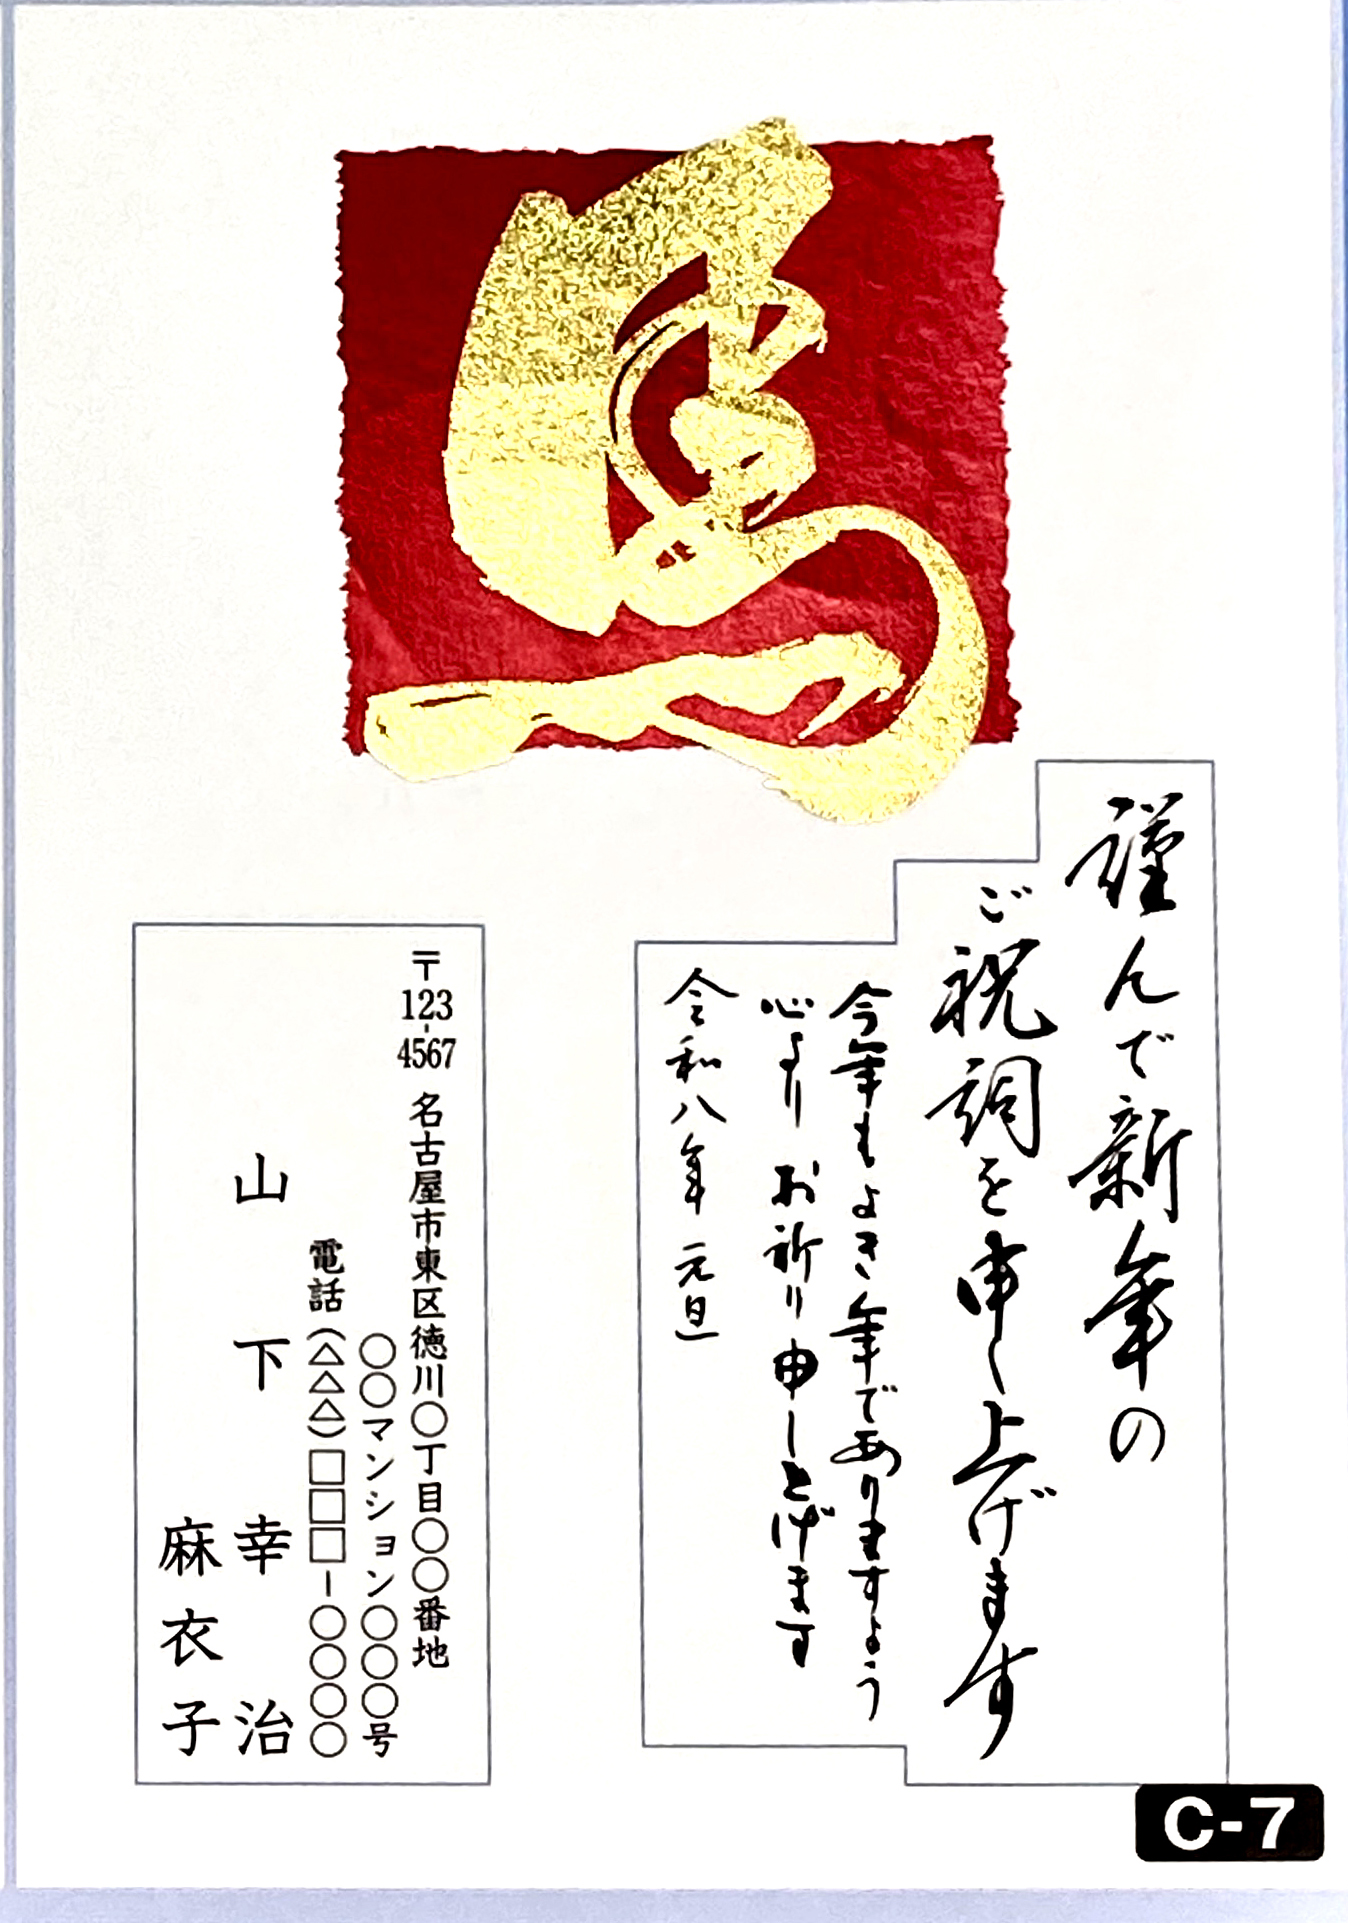 馬
謹んで新年の
ご祝詞を申し上げます
今年もよき年でありますよう
心よりお祈り申し上げます
令和八年 元旦
〒123-4567 名古屋市東区徳川〇丁目〇〇番地
〇〇マンション〇〇〇号
電話(△△△)□□□-〇〇〇〇
山下幸治
麻衣子
C-7